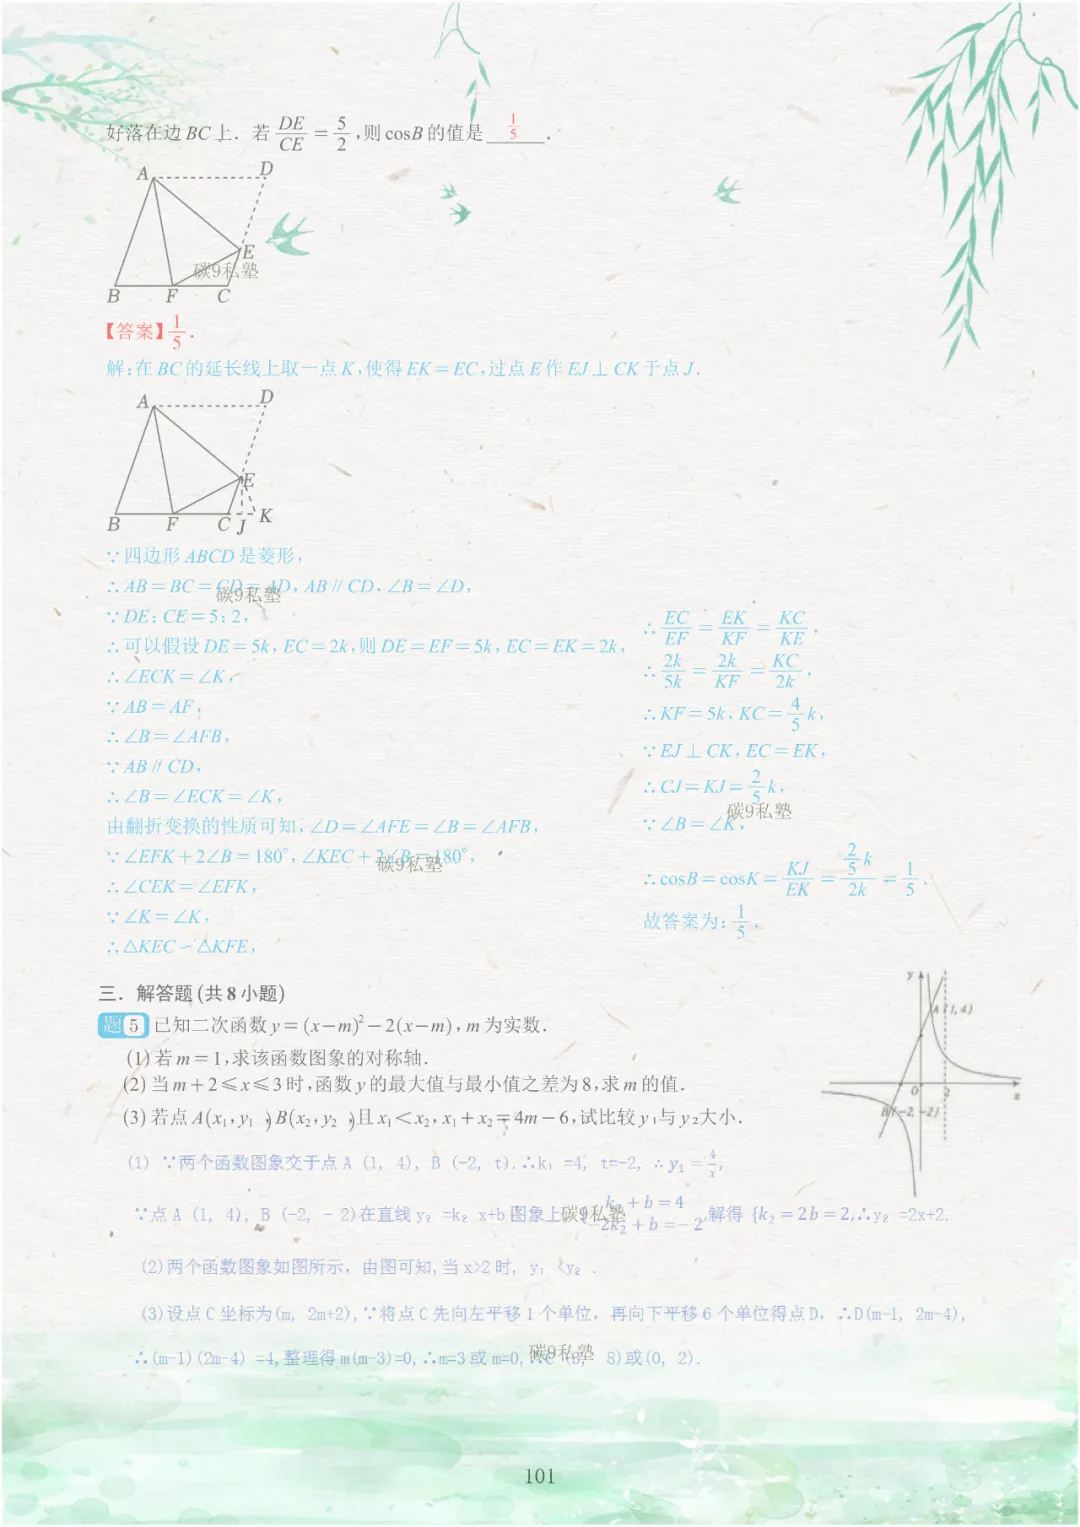 好落在边BC上.若DE/CE=5/2,则cosB的值是 1/5 .
A D
E
B F C
碳9私塾
【答案】1/5.
解:在BC的延长线上取一点K,使得EK=EC,过点E作EJ⊥CK于点J.
A D
E
B F C J K
∵四边形ABCD是菱形,
∴AB=BC=CD=AD,AB∥CD,∠B=∠D,
碳9私塾
∵DE:CE=5:2,
∴可以假设DE=5k,EC=2k,则DE=EF=5k,EC=EK=2k,
∴∠ECK=∠K,
∵AB=AF,
∴∠B=∠AFB,
∵AB∥CD,
∴∠B=∠ECK=∠K,
由翻折变换的性质可知,∠D=∠AFE=∠B=∠AFB,
∵∠EFK+2∠B=180°,∠KEC+2∠B=180°,
碳9私塾
∴∠CEK=∠EFK,
∵∠K=∠K,
∴△KEC∽△KFE,
∴EC/EF=EK/KF=KC/KE,
∴2k/5k=2k/KF=KC/2k,
∴KF=5k,KC=4/5k,
∵EJ⊥CK,EC=EK,
∴CJ=KJ=2/5k,
碳9私塾
∵∠B=∠K,
∴cosB=cosK=KJ/EK=2/5k/2k=1/5.
故答案为:1/5.
三.解答题(共8小题)
题5 已知二次函数y=(x-m)²-2(x-m),m为实数.
(1)若m=1,求该函数图象的对称轴.
(2)当m+2≤x≤3时,函数y的最大值与最小值之差为8,求m的值.
(3)若点A(x₁,y₁),B(x₂,y₂)且x₁<x₂,x₁+x₂=4m-6,试比较y₁与y₂大小.
y
A(1,4)
O 2 x
B(-2,-2)
(1) ∵两个函数图象交于点A (1, 4), B (-2, t).∴k₁ =4, t=-2, ∴y₁=4/x,
∵点A (1, 4), B (-2, -2)在直线y₂ =k₂ x+b图象上, {k₂+b=4 -2k₂+b=-2,解得 {k₂=2b=2,∴y₂ =2x+2.
碳9私塾
(2)两个函数图象如图所示, 由图可知,当x>2时, y₁ <y₂ .
(3)设点C坐标为(m, 2m+2),∵将点C先向左平移1个单位, 再向下平移6个单位得点D, ∴D(m-1, 2m-4),
∴(m-1)(2m-4) =4,整理得m(m-3)=0,∴m=3或m=0,∴C (3, 8)或(0, 2).
碳9私塾
101